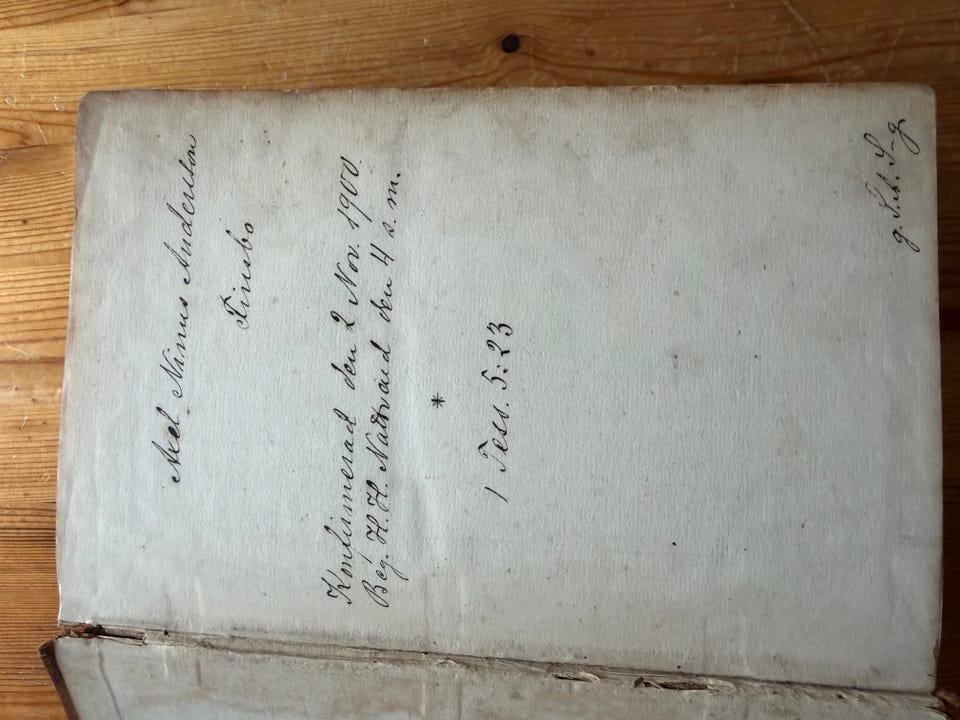 Axel Nimus Anderson
Finsbo
Konfirmerad den 2 Nov. 1900.
Beg. H. H. Nattvard den 4 s. m.
*
1 Tess. 5:23